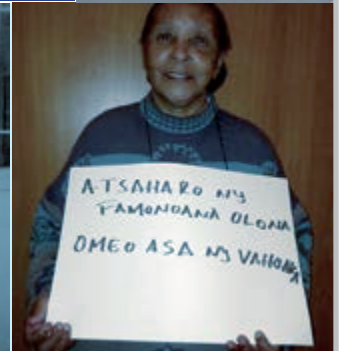 ATSAHARO NY
FAMONOANA OLONA
OMEO ASA NY VAHOAKA